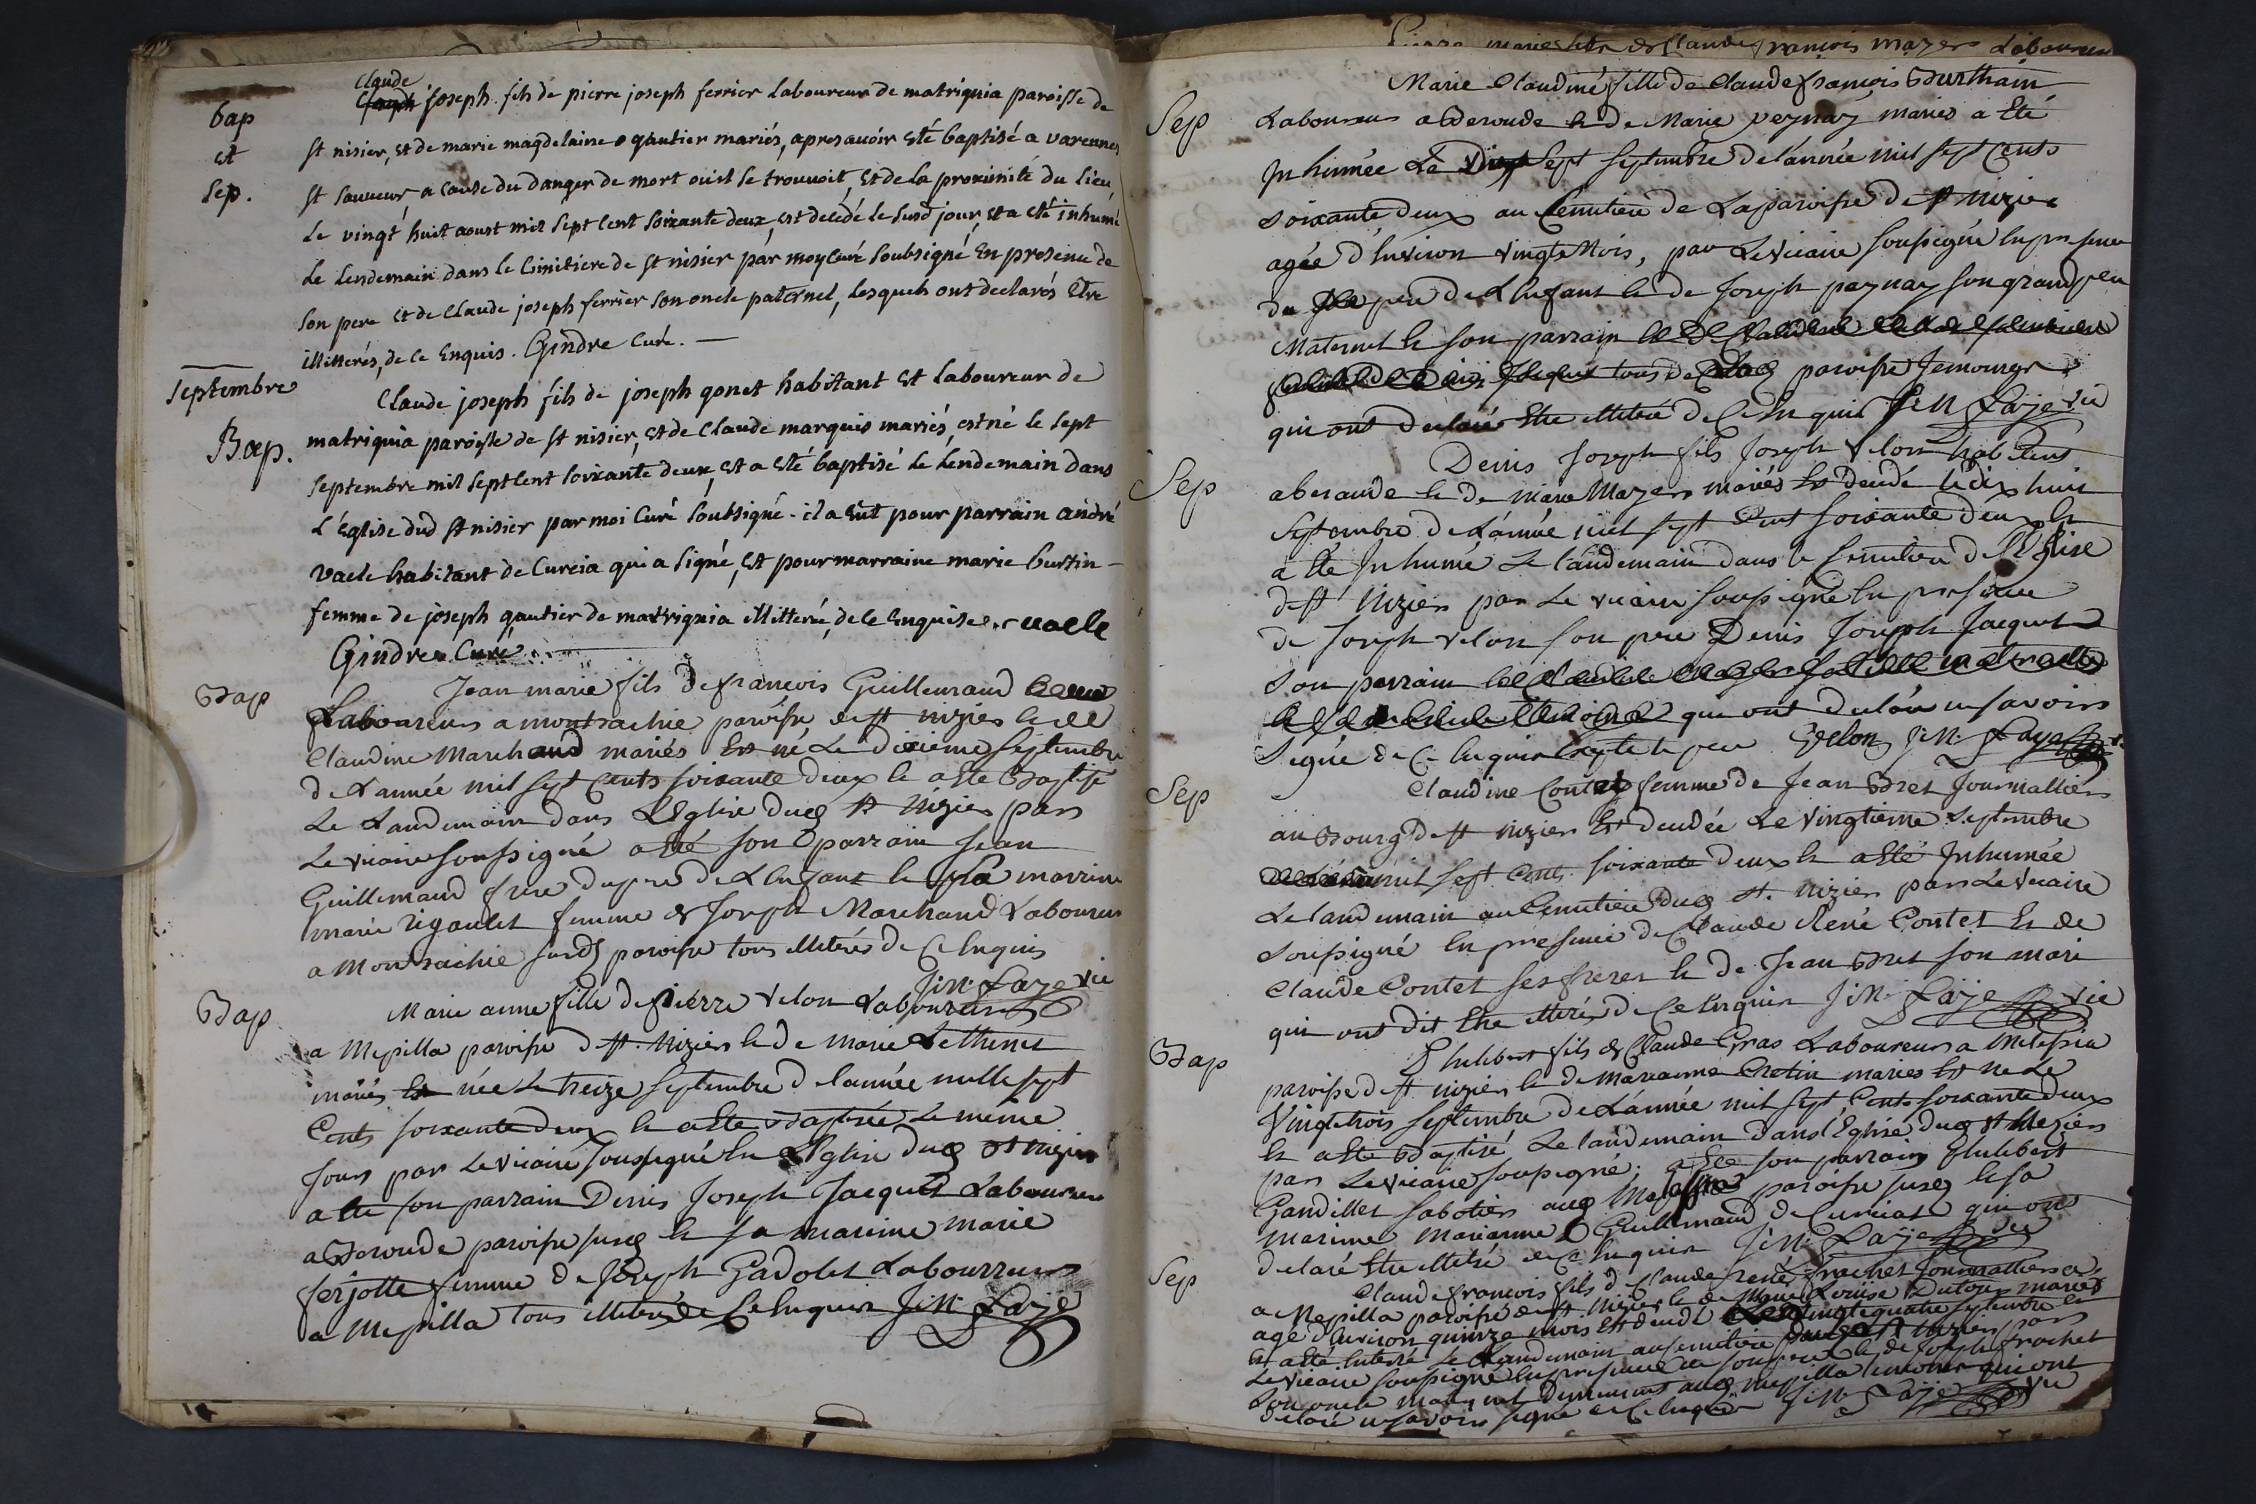 Claude
bap joseph fils de pierre joseph ferrier Laboureur de matriguia paroisse de
et st nisier, et de marie magdelaine gautier mariés, apres avoir eté baptisé a varennes
sep. st sauveur a cause du danger de mort ou il se trouvoit, et de la proximité du lieu,
le vingt huit aoust mil sept cent soixante deux, est decedé le susd jour, et a eté inhumé
le lendemain dans le cimitiere de st nisier par moy curé soubsigné en presence de
son pere et de claude joseph ferrier son oncle paternel, lesquels ont declarés etre
illitterés, de ce enquis. Gindre curé.
septembre
claude joseph fils de joseph gonet habitant et laboureur de
Bap. matriguia paroisse de st nisier, et de claude marquis mariés, est né le sept
septembre mil sept cent soixante deux, et a eté baptisé le lendemain dans
l'eglise dud st nisier par moi curé soubsigné. il a eut pour parrain andré
vacle habitant de curcia qui a signé, et pour marraine marie burtin
femme de joseph gautier de matriguia illitteré, de ce enquise. vacle
Gindre Curé
Bap Jean marie fils de francois Guillemaud
Laboureur a montrachie paroisse de st nizier et de
Claudine Marchand mariés Est né Le dixieme septembre
de L'année mil sept cents soixante deux et a Ete Baptisé
Le Landemain dans L'Eglise dud st Nizier par
Le vicaire soussigné a Eté son parrain Jean
Guillemaud frere du pere de L'Enfant et sa marrine
marie rigaulet femme de Joseph Marchand Laboureur
a Montrachie susd paroisse tous illiterés de Ce Enquis
J: M: Laye vic
Bap Marie anne fille de Pierre velon Laboureur
a Mepilla paroisse de st. Nizier et de marie Lethenet
mariés Est née Le treize septembre de lannée mille sept
Cents soixante deux et a Ete Baptisée Le meme
Jour par Le vicaire soussigné En L'Eglise dud st nizier
a Ete son parrain Denis Joseph Jacquet Laboureur
a Beroude paroisse susd et sa marrine marie
ferjotte femme de Joseph Gadolet Laboureur
a Mepilla tous illiterés de Ce Enquis J: M: Laye
Marie Claudine fille de Claude francois Burthain
Sep Laboureur a Beroude et de Marie peynay mariés a Eté
Inhumée Le Dix Sept septembre de L'année mil sept Cents
soixante deux au Cemitiere de La paroisse de st Nizier
agée d'Environ vingt Mois, par Le vicaire soussigné En presence
du pere de L'Enfant et de Joseph peynay son grand pere
Maternel et son parrain
tous de paroisse
qui ont declaré Etre illiteré de Ce Enquis J: M: Laye vic
Denis Joseph fils Joseph velon habitant
Sep a beraude et de marie Mazer mariés Est decedé Le dix huit
septembre de L'année mil sept Cent soixante deux Et
a Eté Inhumé Le Landemain dans le Cemitiere de L'Eglise
de st Nizier par Le vicaire soussigné En presence
de Joseph velon son pere Denis Joseph Jacquet
son parrain
qui ont declaré ne savoir
signé de Ce Enquis Excepte le pere Velon J: M: Laye
Sep Claudine Contet femme de Jean Bret Journallier
au Bourg de st Nizier Est decedée Le vingtieme septembre
mil sept Cents soixante deux Et a Eté Inhumée
Le landemain au Cemitiere dud st. Nizier par Le vicaire
soussigné En presence de Claude René Contet Et de
Claude Contet ses freres Et de Jean Bret son mari
qui ont dit Etre illiterés de Ce Enquis J: M: Laye vic
Bap Philibert fils de Claude Gras Laboureur a
paroisse de st Nizier et de Marianne Cretin mariés Est né Le
Vingt trois septembre de L'année mil sept Cents soixante deux
Et a Eté Baptisé Le landemain dans L'Eglise dud st Nizier
par Le vicaire soussigné; a Eté son parrain Philibert
Gandillet sabotier aud paroisse susd et sa
marrine Marianne Guillemaud de Curciat qui ont
declaré Etre illiteré de Ce Enquis J: M: Laye vic
Sep Claude francois fils de Claude René frachet Journallier
a Mepilla paroisse de st Nizier et de Marie Louise Dutour mariés
agé d'Environ quinze mois Est decedé Le vingt quatre septembre
Et a Eté Enterré Le Landemain au Cemitiere dud st Nizier par
Le vicaire soussigné En presence de son pere et de Joseph frachet
son oncle aud mepilla qui ont
declaré ne savoir signé de Ce Enquis J: M: Laye vic